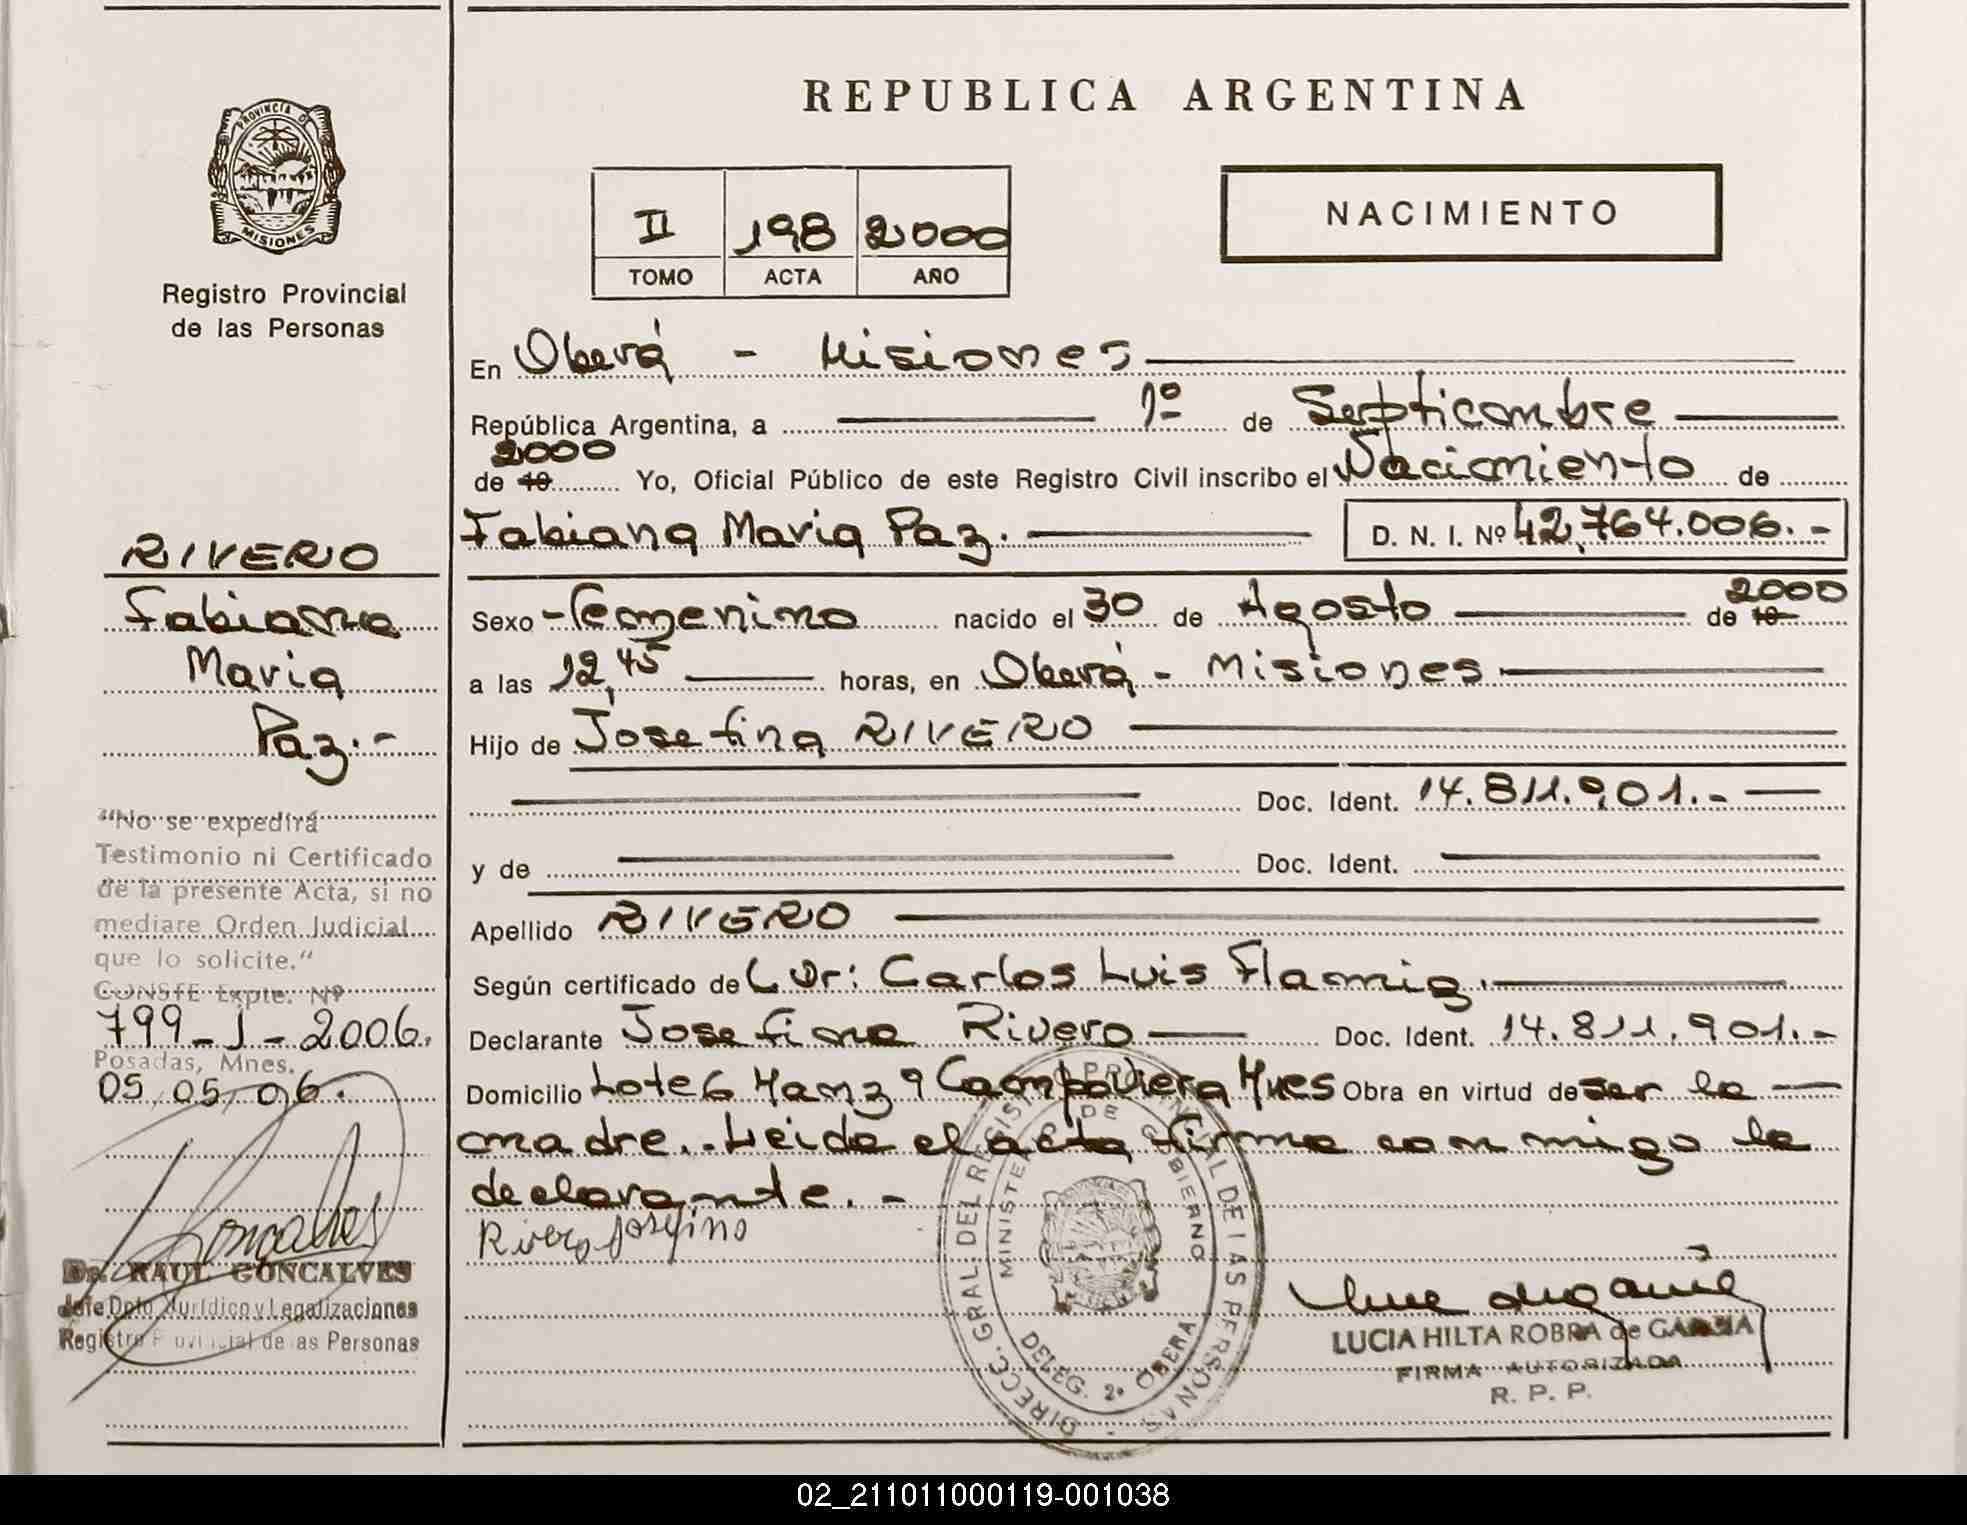 REPUBLICA ARGENTINA
PROVINCIA D
MISIONES
Registro Provincial
de las Personas
II 198 2000
TOMO ACTA AÑO
NACIMIENTO
En Oberá - Misiones
República Argentina, a 1º de Septiembre
2000
de 19 Yo, Oficial Público de este Registro Civil inscribo el Nacimiento de
Fabiana Maria Paz.- D. N. I. Nº 42.764.006.-
RIVERO
Fabiana
Maria
Paz.-
Sexo - femenino nacido el 30 de Agosto de 19 2000
a las 12,45 horas, en Oberá - Misiones
Hijo de Josefina RIVERO
Doc. Ident. 14.811.901.-
y de Doc. Ident.
Apellido RIVERO
Según certificado del Dr: Carlos Luis Flamig.
Declarante Josefina Rivero Doc. Ident. 14.811.901.-
Domicilio Lote 6 Manz 9 Campo Viera Mnes Obra en virtud de ser la
madre.- Leida el acta firma conmigo la
declarante.-
Rivero Josefina
"No se expedirá
Testimonio ni Certificado
de la presente Acta, si no
mediare Orden Judicial
que lo solicite."
CONSTE Expte. Nº
799-J-2006.
Posadas, Mnes.
05,05,06.
Goncalves
Dr. RAUL GONCALVES
Jefe Dpto. Jurídico y Legalizaciones
Registro Provincial de las Personas
DIRECC. GRAL. DEL REGISTRO PROVINCIAL DE LAS PERSONAS
MINISTERIO DE GOBIERNO
DELEG. 2º OBERA
LUCIA HILTA ROBRA de GARCIA
FIRMA AUTORIZADA
R. P. P.
02_211011000119-001038